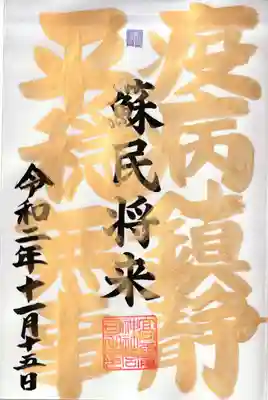 疫病鎮静
平穏無事
蘇民将来
令和二年十一月十五日